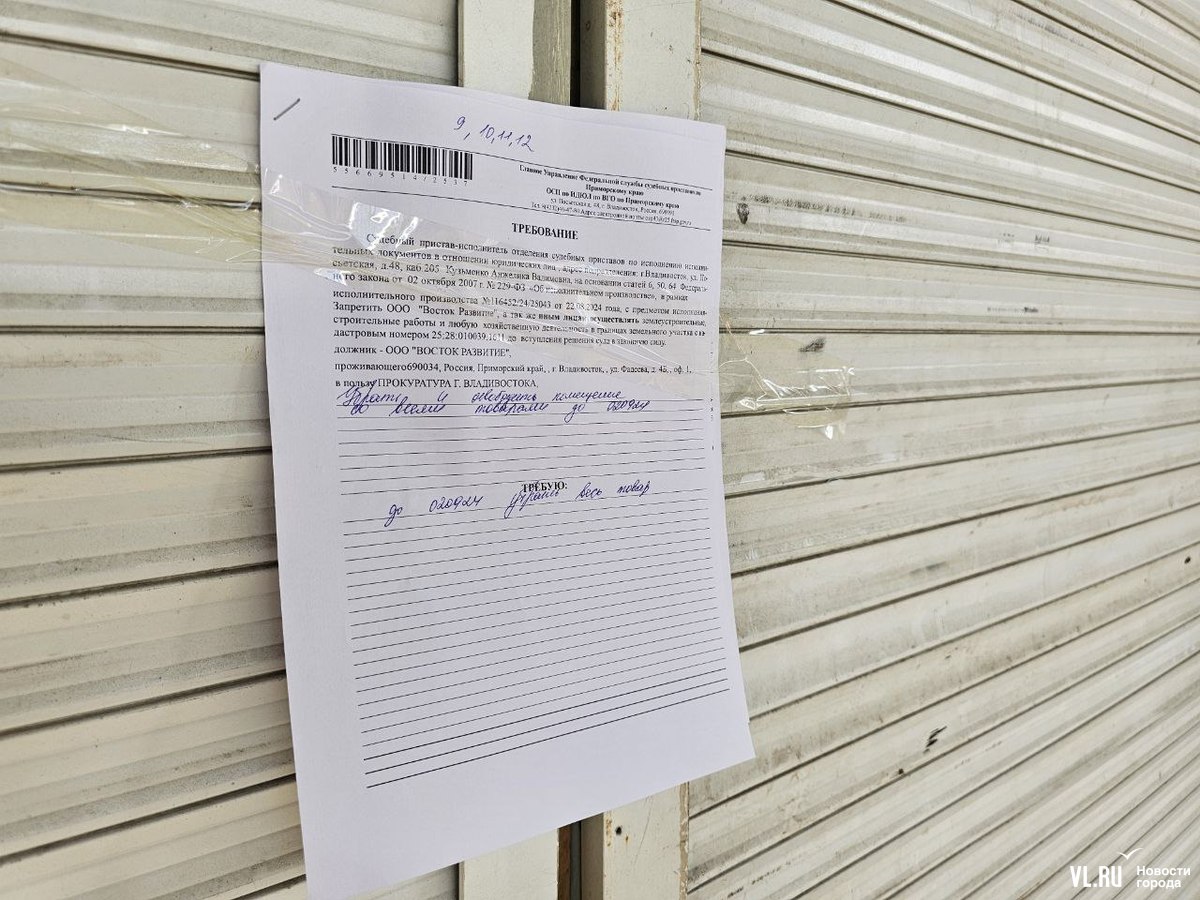 9, 10, 11, 12
5566951472537
Главное Управление Федеральной службы судебных приставов по
Приморскому краю
ОСП по ИДЮЛ по ВГО по Приморскому краю
г. Владивосток, Россия, 690091
ТРЕБОВАНИЕ
Судебный пристав-исполнитель отделения судебных приставов по исполнению исполни-
тельных документов в отношении юридических лиц , адрес подразделения: г.Владивосток, ул. По-
сьетская, д.48, каб.205 Кузьменко Анжелика Вадимовна, на основании статей 6, 50, 64 Федераль-
ного закона от 02 октября 2007 г. № 229-ФЗ «Об исполнительном производстве», в рамках
исполнительного производства №116452/24/25043 от 22.08.2024 года, с предметом исполнения-
Запретить ООО "Восток Развитие", а так же иным лицам осуществлять землеустроительные,
строительные работы и любую хозяйственную деятельность в границах земельного участка с ка-
дастровым номером 25:28:010039:1611 до вступления решения суда в законную силу.
должник - ООО "ВОСТОК РАЗВИТИЕ",
проживающего690034, Россия, Приморский край, , г. Владивосток, , ул. Фадеева, д. 4Б, , оф. 1,
в пользу ПРОКУРАТУРА Г. ВЛАДИВОСТОКА,
Убрать и освободить помещение
со всеми товарами до 020924
ТРЕБУЮ:
до 020924 убрать весь товар
VL.RU Новости
города